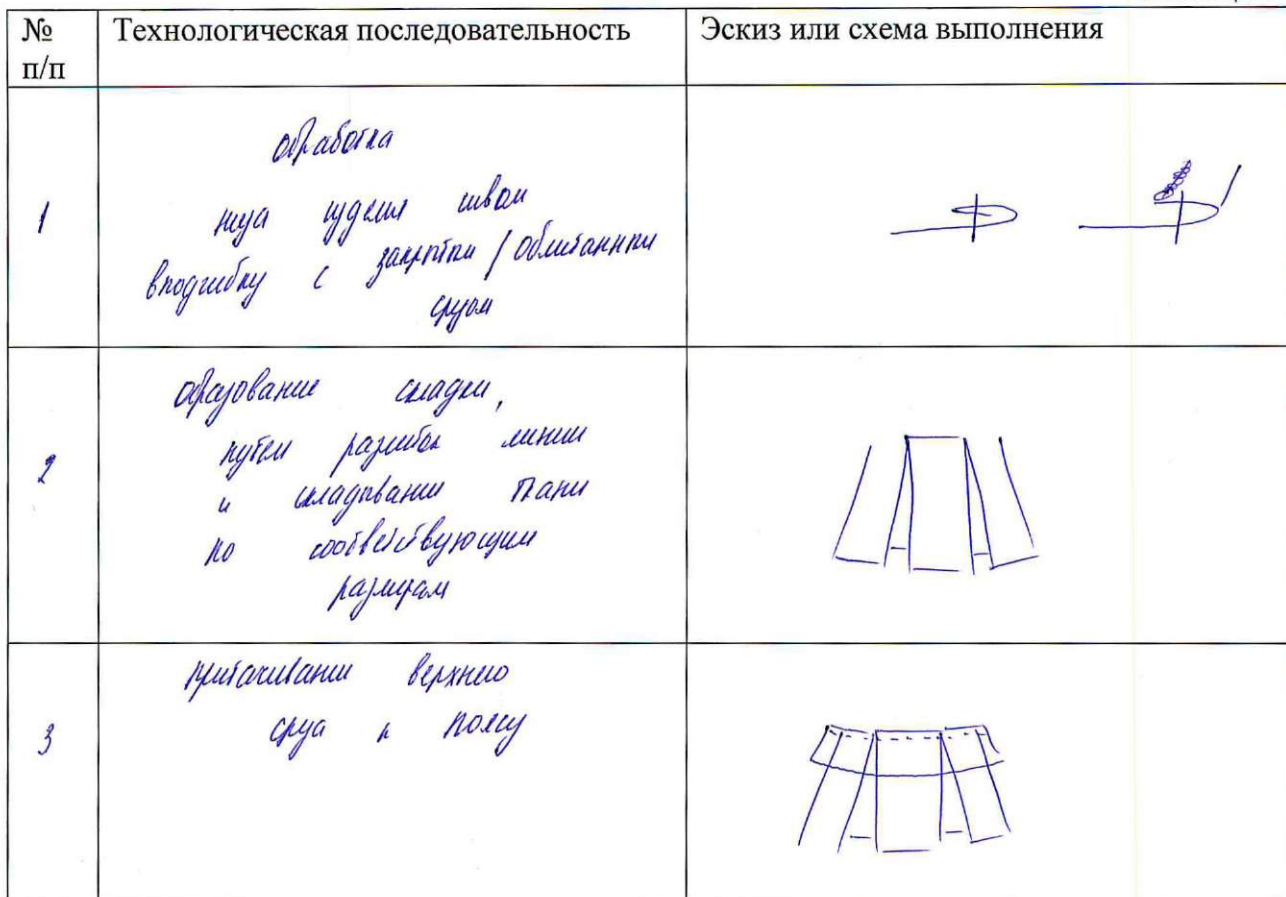 № п/п
Технологическая последовательность
Эскиз или схема выполнения
1
обработка
низа изделия швом
вподгибку с закрытым / обмётанным
срезом
2
образование складки,
путём разметки линии
и складывание ткани
по соответствующим
размерам
3
притачивание верхнего
среза к поясу